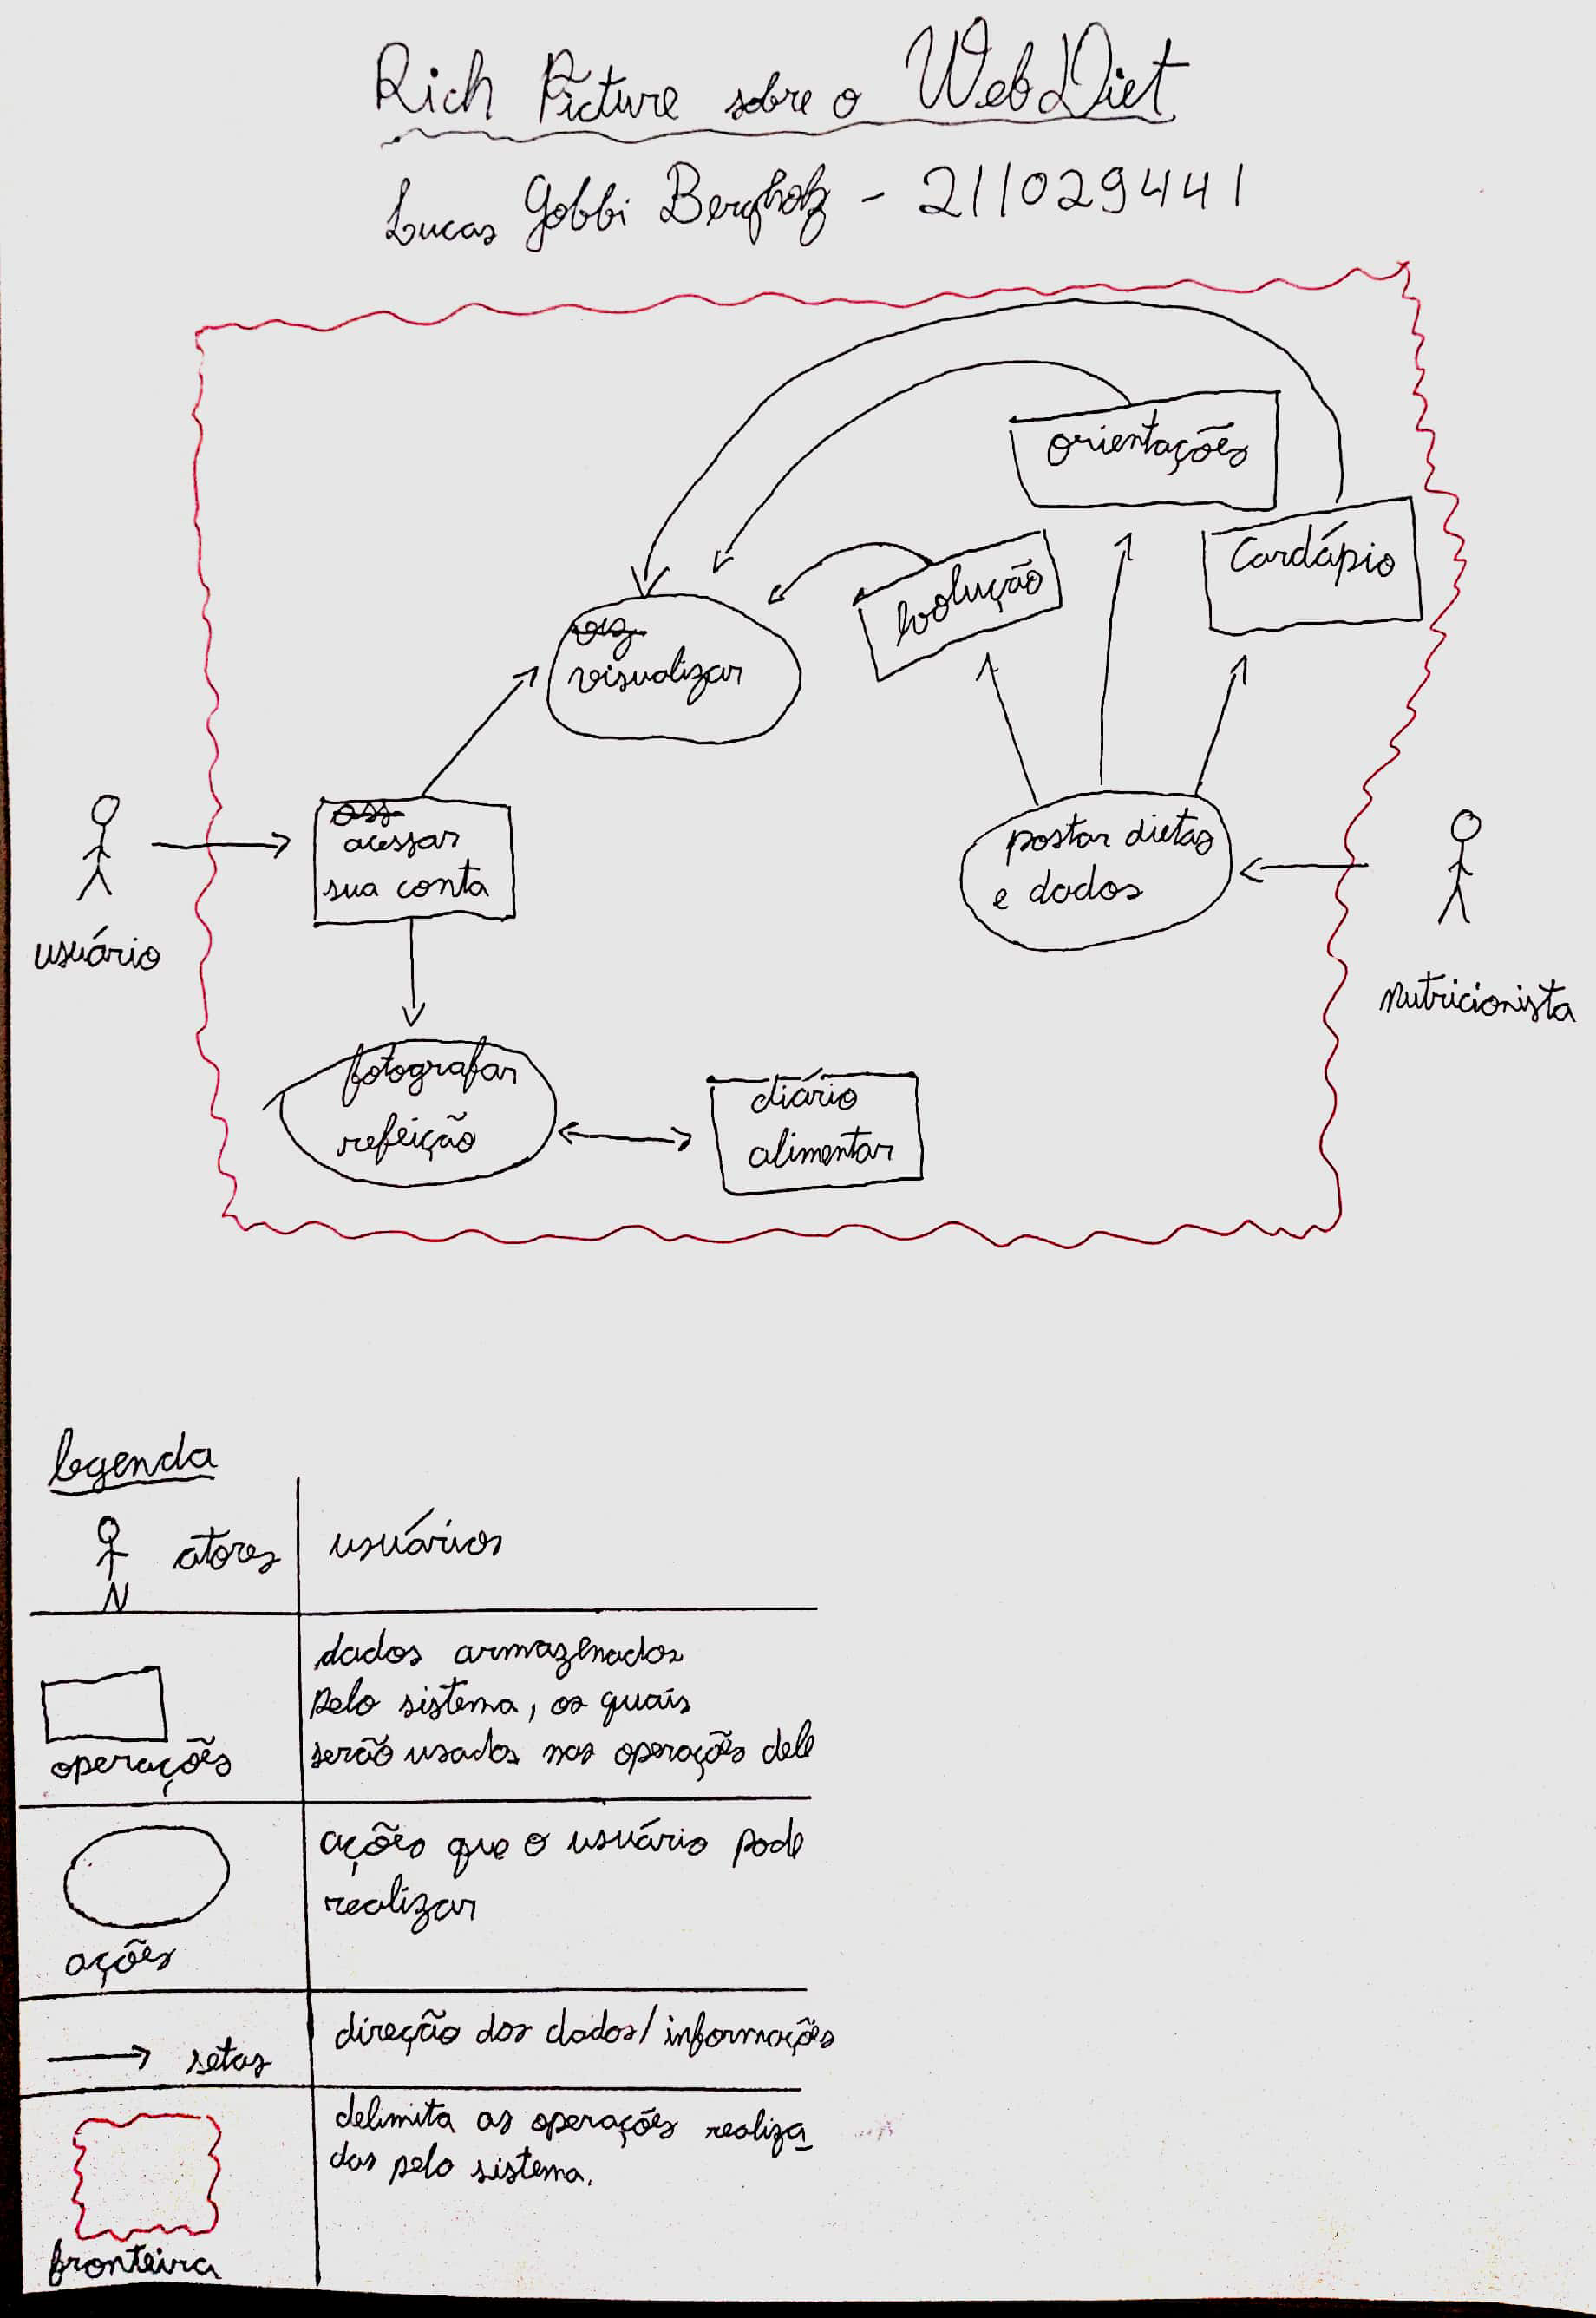 Rich Picture sobre o WebDiet
Lucas Gobbi Bergholz - 211029441
orientações
Cardápio
Evolução
visualizar
acessar
sua conta
postar dietas
e dados
usuário
nutricionista
fotografar
refeição
diário
alimentar
legenda
atores
usuários
operações
dados armazenados
pelo sistema, os quais
serão usados nas operações dele
ações
ações que o usuário pode
realizar
setas
direção dos dados/informações
fronteira
delimita as operações realiza
das pelo sistema.